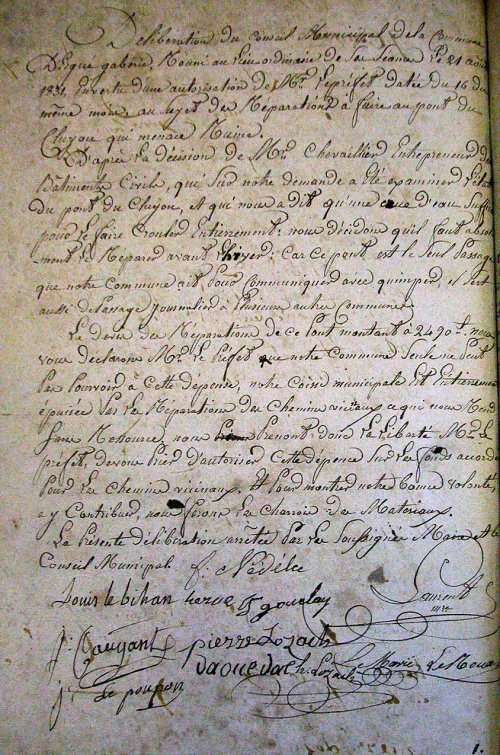 Délibération du Conseil Municipal de la Commune
D'Ergue gaberic Réuni au lieu ordinaire de ses Séances le 21 août
1831 En vertu d'une autorisation de Mr. le préfet datée du 16 du
même mois, au sujet des Réparations à faire au pont du
Cleuyou qui menace Ruine.
D'après la décision de Mr. Chevaillier Entrepreneur de
Bâtiments Civils, qui sur notre demande a été examiner l'état
du pont du Cleuyou, et qui nous a dit qu'une crue d'eau suffit
pour le faire Crouler Entièrement; nous décidons qu'il faut absolu-
ment le Réparer avant l'hiver; Car ce pont est le seul passage
que notre Commune ait pour Communiquer avec quimper, il sert
aussi de passage journalier à plusieurs autres communes.
Le devis des Réparations de ce Pont montant à 2490 f. nous
vous déclarons Mr. le Préfet que notre Commune seule ne peut
pas pourvoir à cette dépense, notre caisse municipale est Entièrement
épuisée par les Réparations des Chemins vicinaux ce qui nous Rend
sans Ressource, nous prenons donc la liberté Mr. le
préfet, de vous prier d'autoriser cette dépense sur les fonds accordés
pour les chemins vicinaux, Et pour montrer notre bonne volonté
a y Contribuer, nous ferons les charrois des Matériaux.
La présente délibération arrêtée par les Soussignés Maire et le
Conseil Municipal. f: Nédélec
Louis le bihan herve gourlay Laurent
J: Caugant pierre Lozach
daoudal le Lozach Le Moue
J. Le poupon